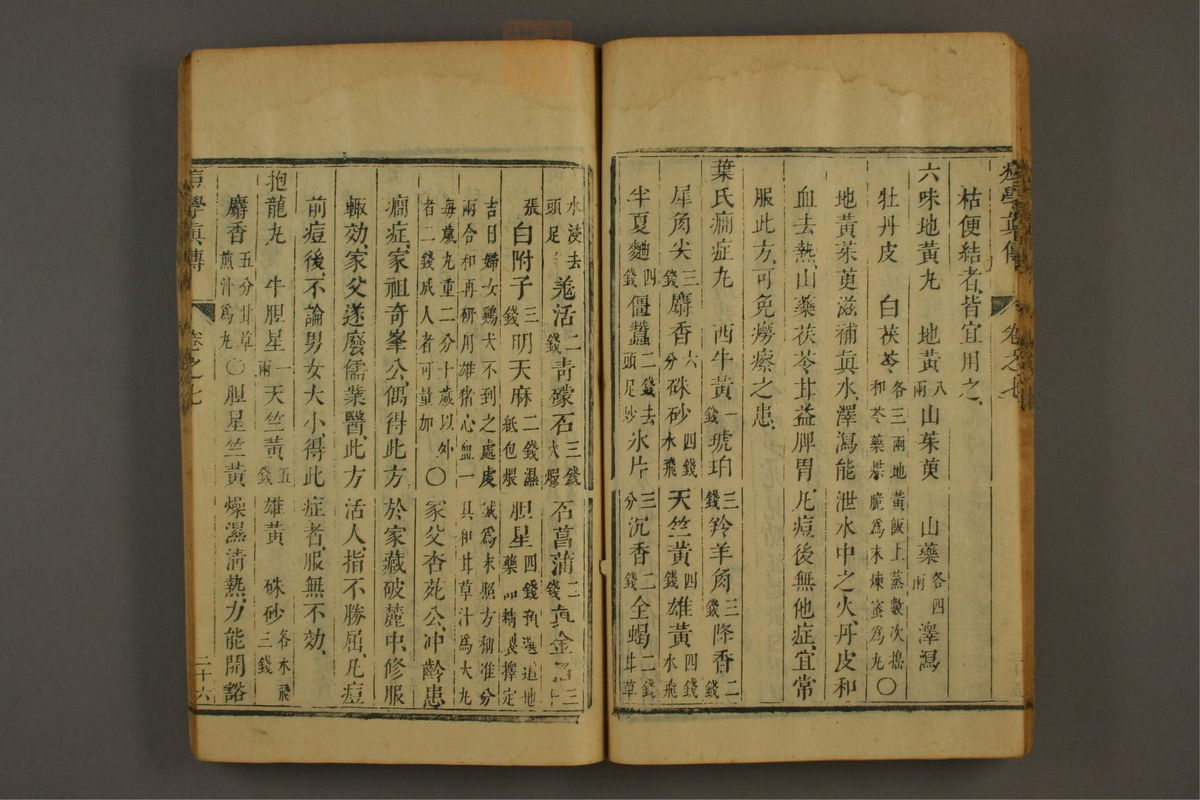 痘學真傳 卷之七
枯便結者、皆宜用之、
六味地黃丸 地黃八兩 山茱萸 山藥各四兩 澤瀉
牡丹皮 白茯苓各三兩地黃飯上蒸數次搗和苓藥烘脆爲末煉蜜爲丸〇
地黃茱萸滋補真水、澤瀉能泄水中之火、丹皮和
血去熱、山藥茯苓甘益脾胃、凡痘後無他症、宜常
服此方、可免癆瘵之患、
葉氏癇症丸 西牛黃一錢 琥珀三錢 羚羊角三錢 降香二錢
犀角尖三錢 麝香六分 硃砂四錢水飛 天竺黃四錢 雄黃四錢水飛
半夏麯四錢 僵蠶二錢去頭足炒 氷片三分 沉香二錢 全蝎二錢甘草
水浸去頭足 羌活二錢 青礞石三錢火煅 石菖蒲二錢 真金箔三十
張 白附子三錢 明天麻二錢濕紙包煨 胆星四錢須選道地藥品精良擇定
吉日婦女鷄犬不到之處虔誠爲末照方稱准分兩合和再研用雄猪心血一具和甘草汁爲大丸
每歲丸重二分十歲以外者二錢成人者可量加〇家父杏苑公、冲齡患
癇症、家祖奇峯公、偶得此方於家藏破麓中、修服
輙効、家父遂廢儒業醫、此方活人、指不勝屈、凡痘
前痘後、不論男女大小、得此症者、服無不効、
抱龍丸 牛胆星一兩 天竺黃五錢 雄黃 硃砂各水飛三錢
麝香五分甘草煎汁爲丸〇胆星竺黃燥濕清熱、力能開豁
痘學真傳 卷之七 二十六